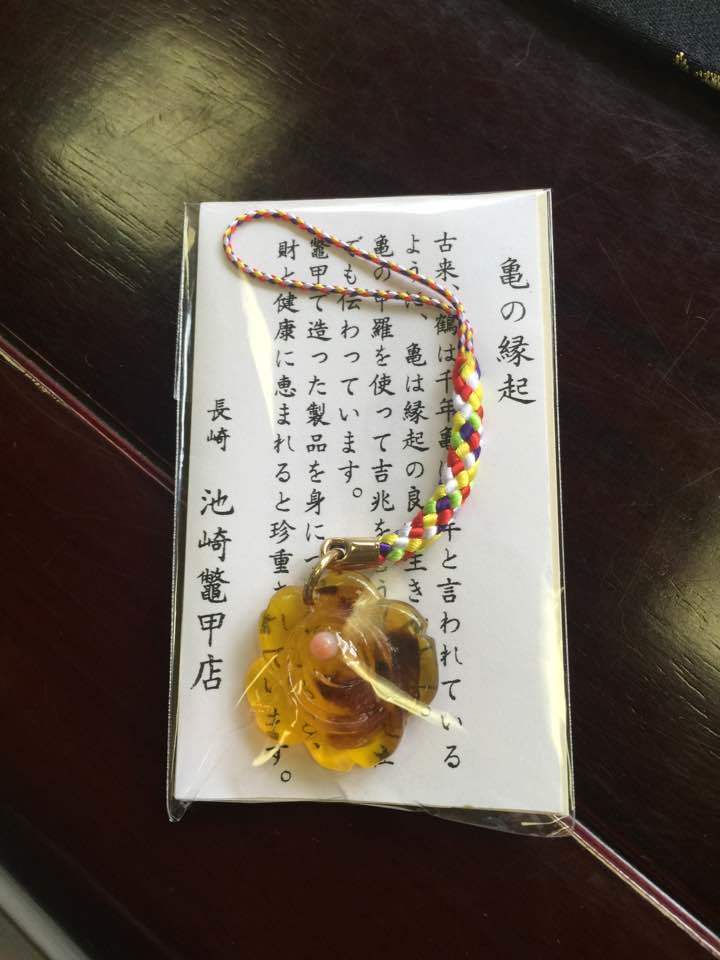 亀の縁起
古来、鶴は千年亀は年と言われている
ように、亀は縁起の良生き
亀の甲羅を使って吉兆をう
でも伝わっています。
鼈甲で造った製品を身につと、
財と健康に恵まれると珍重さています。
長崎 池崎鼈甲店